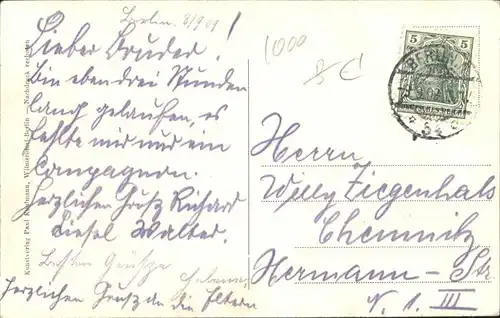 Berlin. 8/9 09
Lieber Bruder!
Bin eben drei Stunden
lang gelaufen, es
fehlte mir nur ein
Compagnon.
Herzlichen Gruß Richard
Liesel Walter.
Besten Grüsse
Herzlichen Gruß an die Eltern
Kunstverlag Paul Wilmersdorf, Berlin — Nachdruck verboten
1000
5 5
BERLIN
Herrn
Willy Ziegenhals
Chemnitz
Hermann-Str
N. 1. III